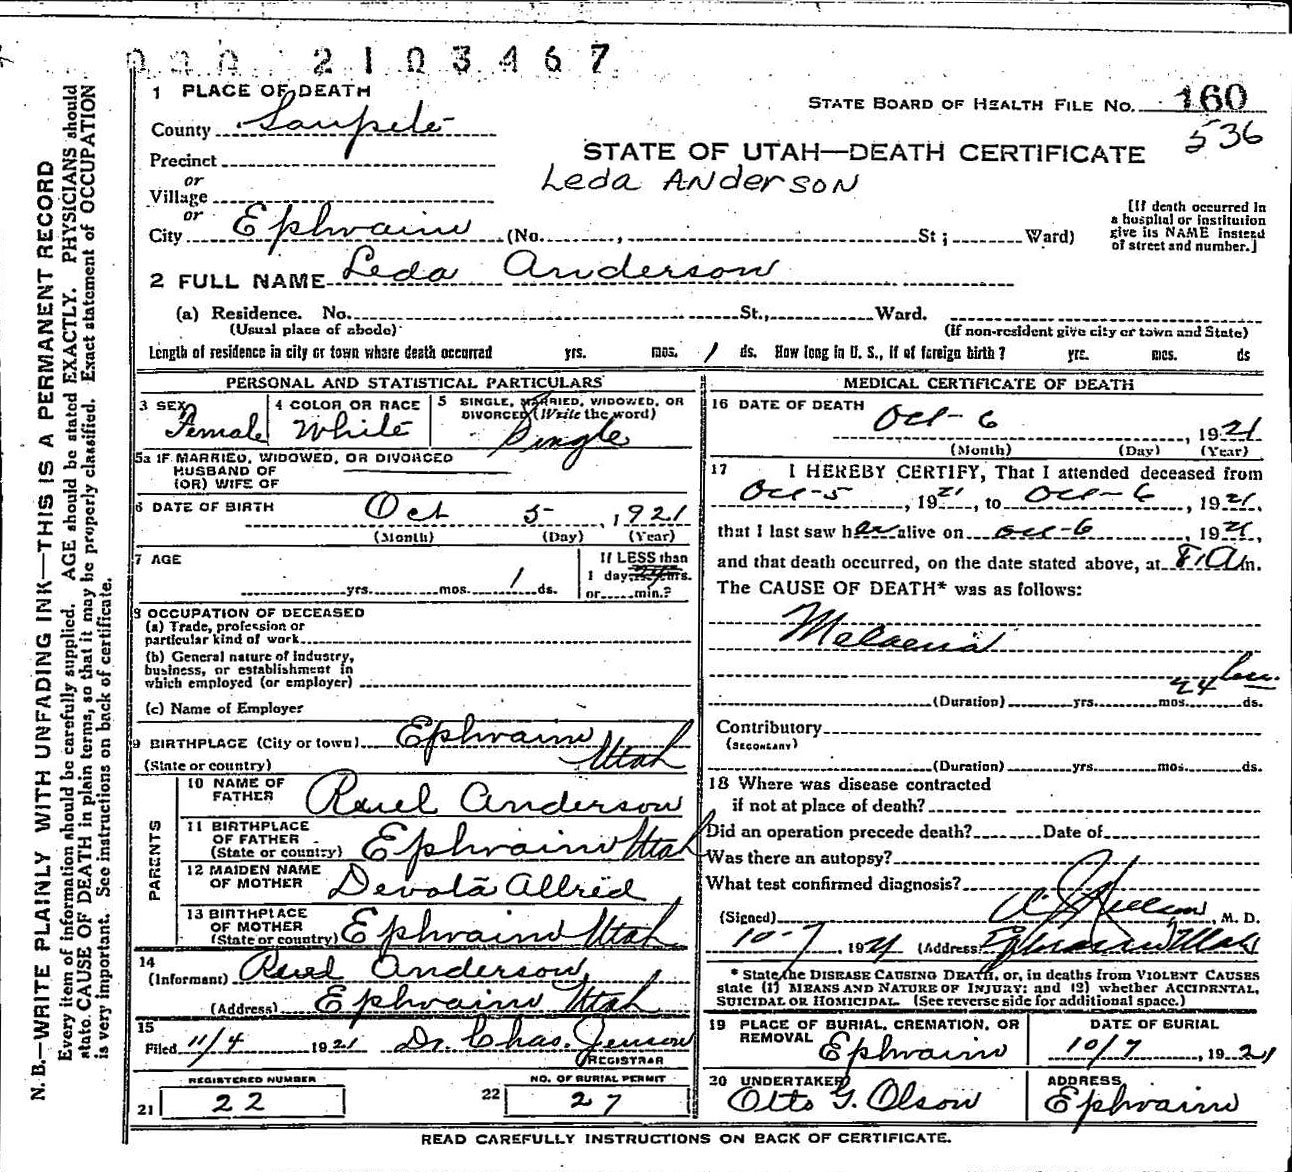 2103467
1 PLACE OF DEATH
STATE BOARD OF HEALTH FILE NO. 160
County Sanpete
536
STATE OF UTAH—DEATH CERTIFICATE
Precinct
or
Leda Anderson
Village
or
City Ephraim (No. , St; Ward)
[If death occurred in
a hospital or institution
give its NAME instead
of street and number.]
2 FULL NAME Leda Anderson
(a) Residence. No. St., Ward.
(Usual place of abode) (If non-resident give city or town and State)
Length of residence in city or town where death occurred yrs. mos. 1 ds. How long in U. S., if of foreign birth? yrs. mos. ds
PERSONAL AND STATISTICAL PARTICULARS
3 SEX Female
4 COLOR OR RACE White
5 SINGLE, MARRIED, WIDOWED, OR
DIVORCED (Write the word)
Single
5a IF MARRIED, WIDOWED, OR DIVORCED
HUSBAND OF
(OR) WIFE OF
6 DATE OF BIRTH Oct 5, 1921
(Month) (Day) (Year)
7 AGE
yrs. mos. 1 ds.
If LESS than
1 day, hrs.
or min.?
8 OCCUPATION OF DECEASED
(a) Trade, profession or
particular kind of work
(b) General nature of industry,
business, or establishment in
which employed (or employer)
(c) Name of Employer
9 BIRTHPLACE (City or town) Ephraim
(State or country) Utah
PARENTS
10 NAME OF
FATHER Reuel Anderson
11 BIRTHPLACE
OF FATHER
(State or country) Ephraim Utah
12 MAIDEN NAME
OF MOTHER Devota Allred
13 BIRTHPLACE
OF MOTHER
(State or country) Ephraim Utah
14
(Informant) Reuel Anderson
(Address) Ephraim Utah
15
Filed 11/4 1921 Dr. Chas. Jenson
REGISTRAR
REGISTERED NUMBER
21 22
NO. OF BURIAL PERMIT
22 27
MEDICAL CERTIFICATE OF DEATH
16 DATE OF DEATH
Oct-6, 1921
(Month) (Day) (Year)
17 I HEREBY CERTIFY, That I attended deceased from
Oct-5, 1921, to Oct-6, 1921,
that I last saw her alive on Oct-6, 1921,
and that death occurred, on the date stated above, at 8 A m.
The CAUSE OF DEATH* was as follows:
Melaena
24 hrs.
(Duration) yrs. mos. ds.
Contributory
(SECONDARY)
(Duration) yrs. mos. ds.
18 Where was disease contracted
if not at place of death?
Did an operation precede death? Date of
Was there an autopsy?
What test confirmed diagnosis?
(Signed) , M. D.
10-7, 1921 (Address) Ephraim Utah
* State the DISEASE CAUSING DEATH, or, in deaths from VIOLENT CAUSES
state (1) MEANS AND NATURE OF INJURY; and (2) whether ACCIDENTAL,
SUICIDAL OR HOMICIDAL. (See reverse side for additional space.)
19 PLACE OF BURIAL, CREMATION, OR
REMOVAL
Ephraim
DATE OF BURIAL
10/7, 1921
20 UNDERTAKER
Otto G. Olson
ADDRESS
Ephraim
READ CAREFULLY INSTRUCTIONS ON BACK OF CERTIFICATE.
N. B.—WRITE PLAINLY WITH UNFADING INK—THIS IS A PERMANENT RECORD
Every item of information should be carefully supplied. AGE should be stated EXACTLY. PHYSICIANS should
state CAUSE OF DEATH in plain terms, so that it may be properly classified. Exact statement of OCCUPATION
is very important. See instructions on back of certificate.